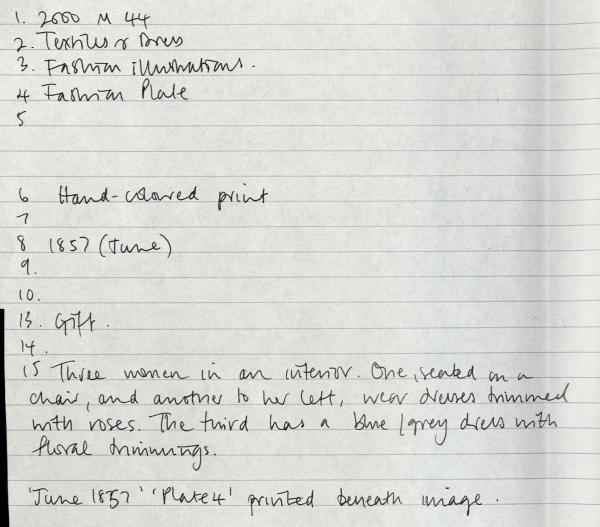 1. 2000 M 44
2. Textiles & Dress
3. Fashion illustrations.
4 Fashion Plate
5
6 Hand-coloured print
7
8 1857 (June)
9.
10.
13. Gift.
14.
15 Three women in an interior. One, seated on a
chair, and another to her left, wear dresses trimmed
with roses. The third has a blue/grey dress with
floral trimmings.
'June 1857' 'Plate 4' printed beneath image.